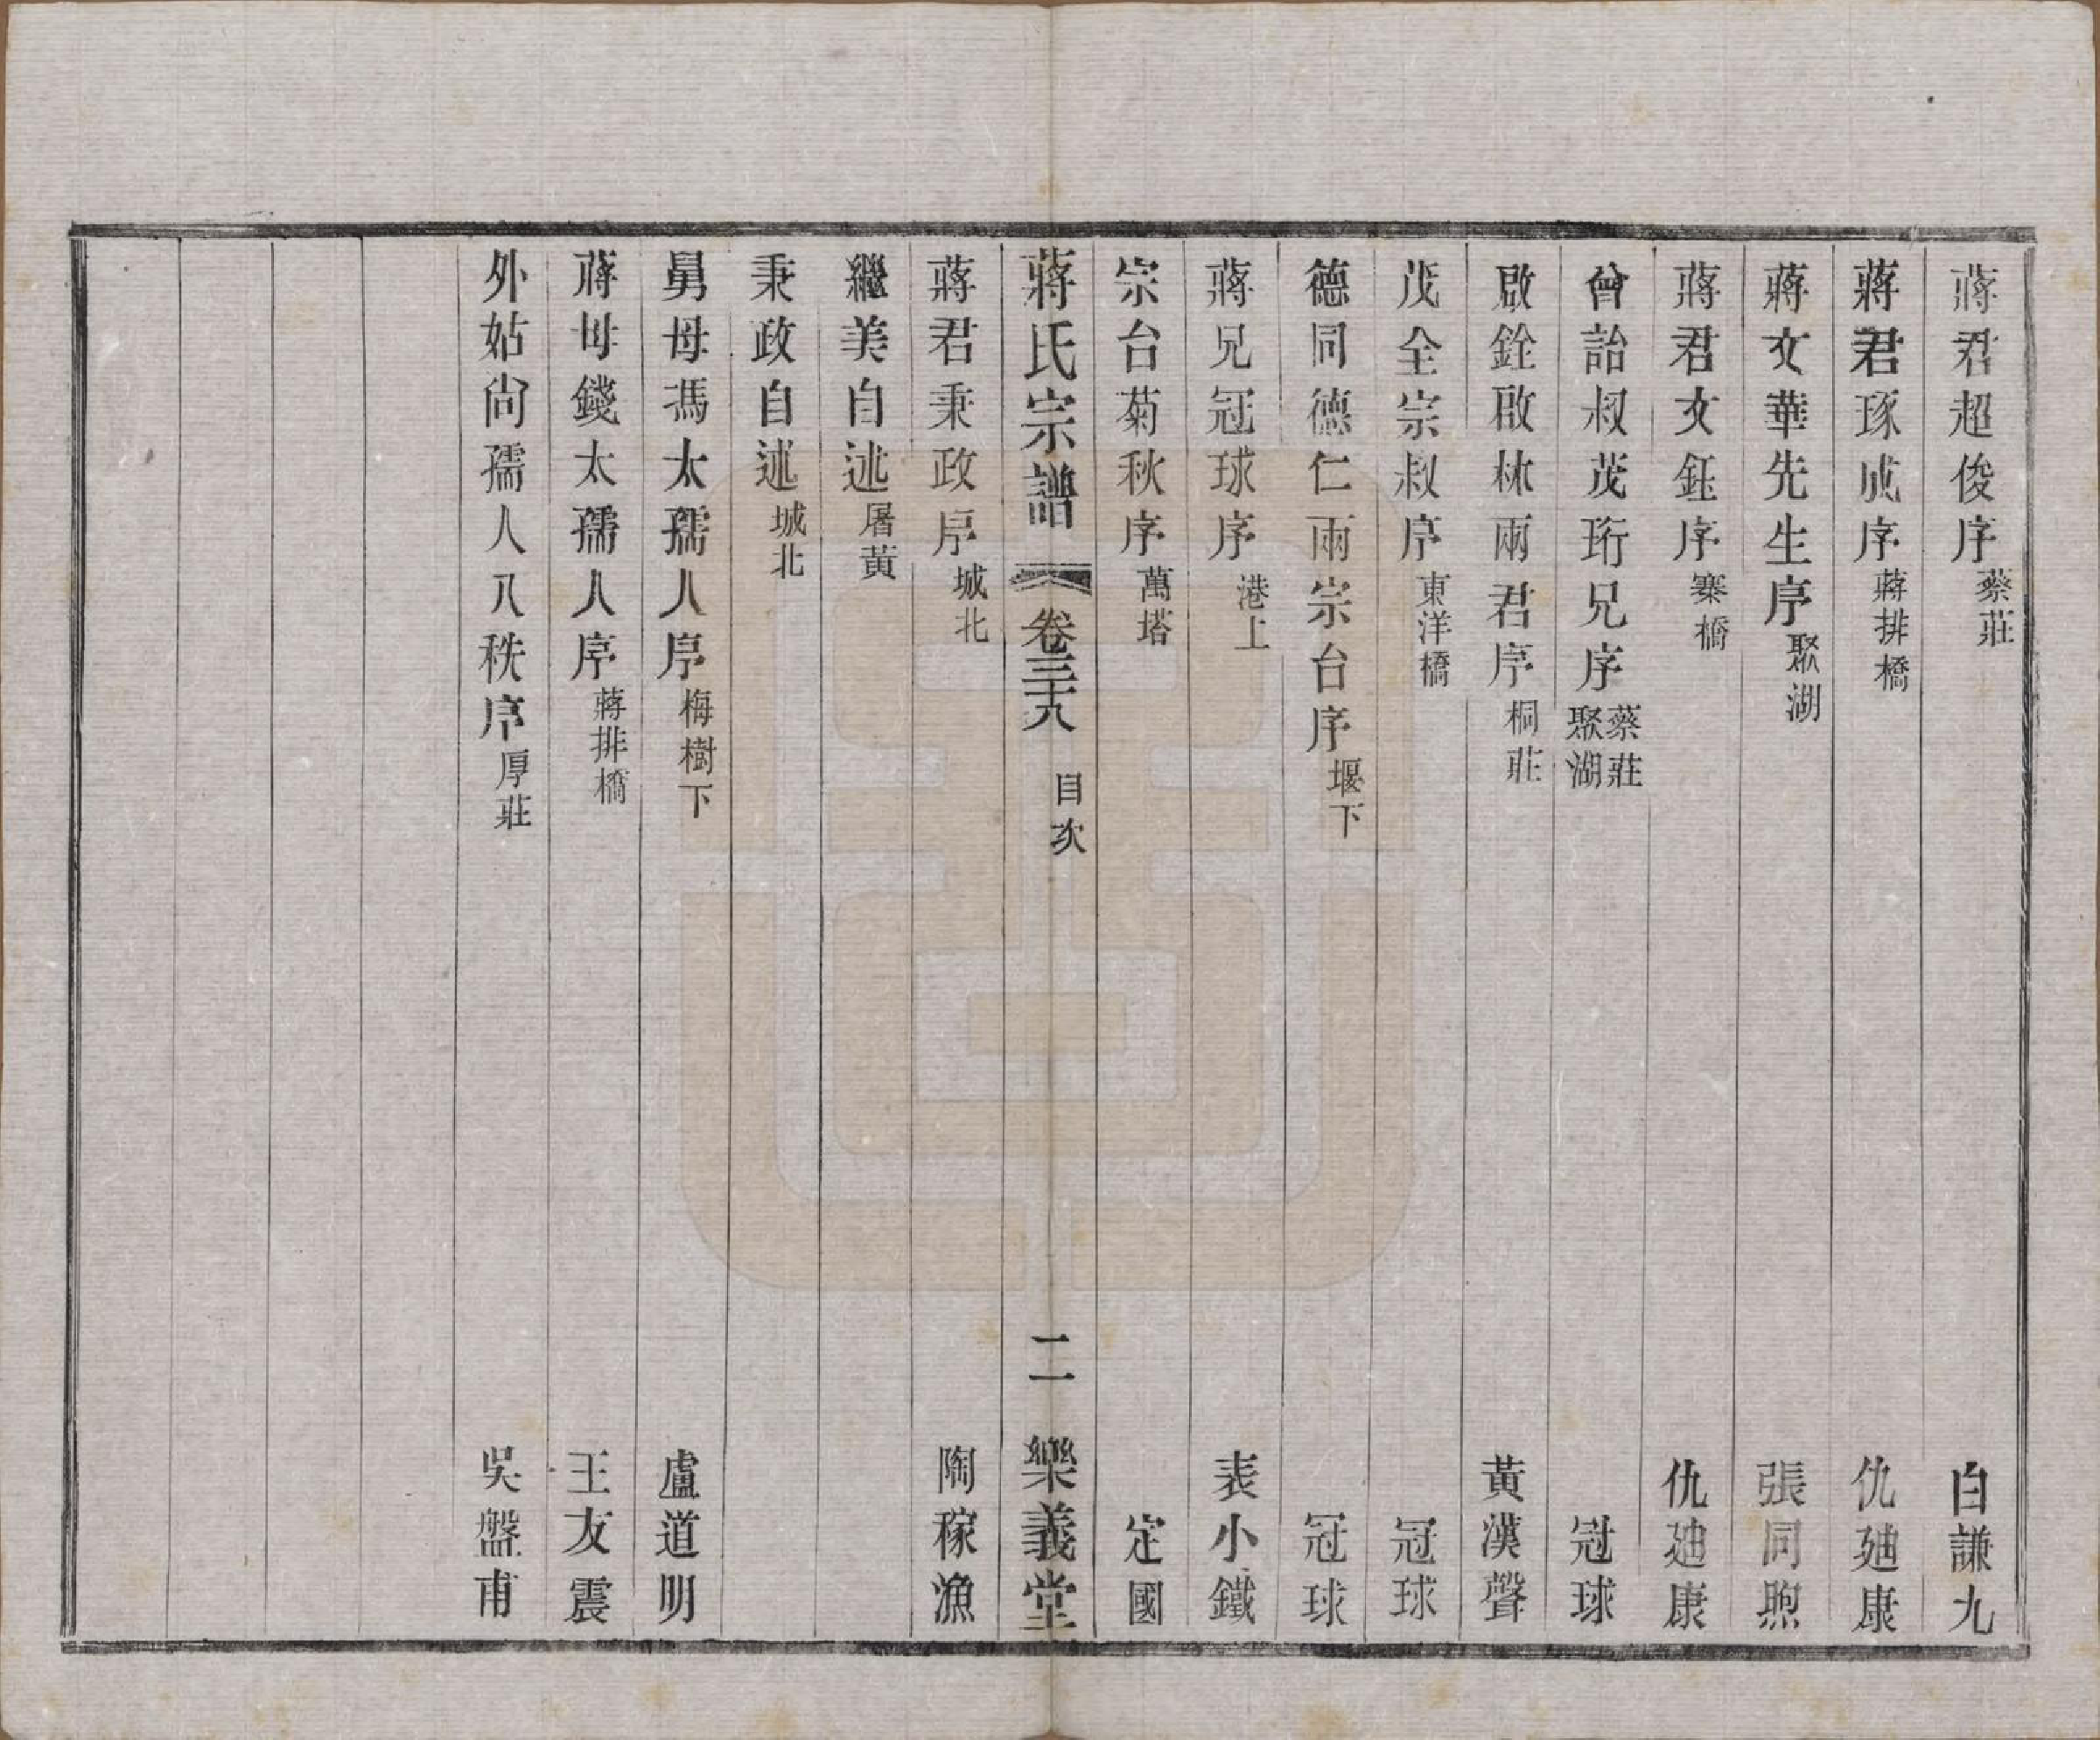 蔣君超俊序 蔡莊 白謙九
蔣君琢成序 蔣排橋 仇廸康
蔣文華先生序 聚湖 張同煦
蔣君文鈺序 寨橋 仇廸康
曾詒叔茂珩兄序 蔡莊 聚湖 冠球
啟銓啟林兩君序 桐莊 黃漢聲
茂全宗叔序 東洋橋 冠球
德同德仁兩宗台序 堰下 冠球
蔣兄冠球序 港上 表小鐵
宗台菊秋序 萬塔 定國
蔣氏宗譜 卷三十八 目次 二 樂義堂
蔣君秉政序 城北 陶稼漁
繼美自述 屠黃
秉政自述 城北
舅母馮太孺人序 梅樹下 盧道明
蔣母錢太孺人序 蔣排橋 王友震
外姑尙孺人八秩序 厚莊 吳盤甫